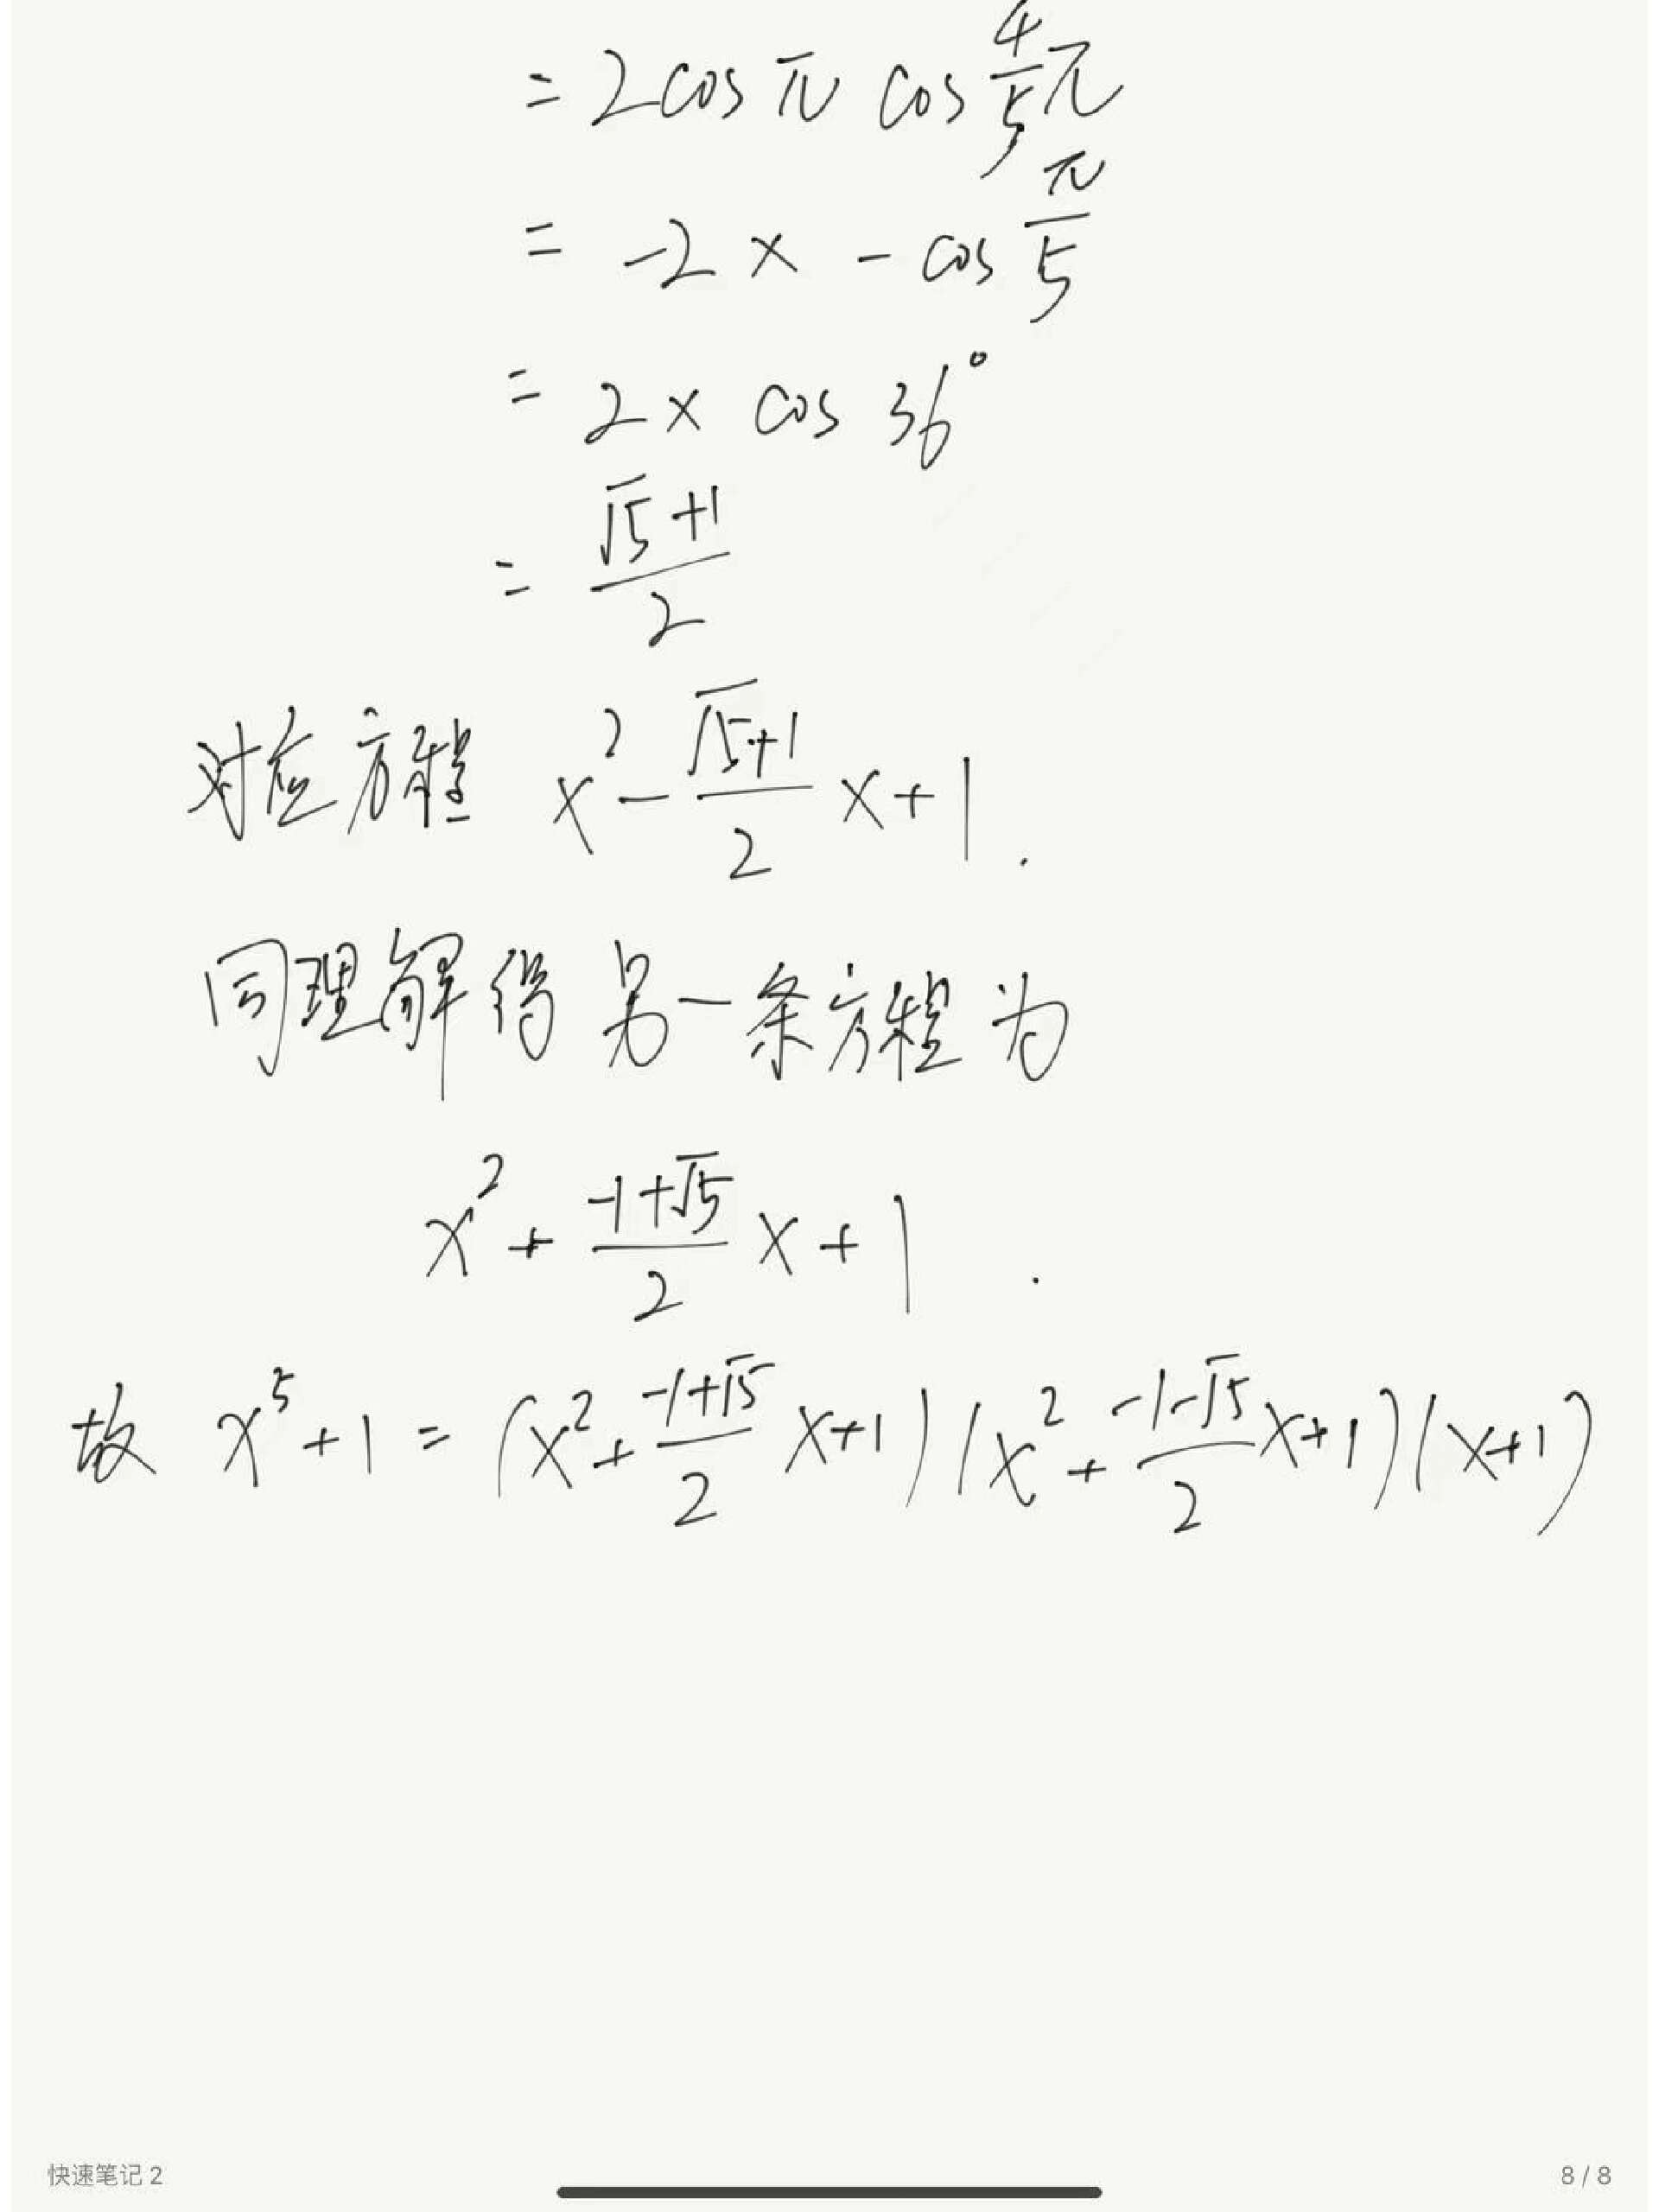 = 2cos π cos 4/5 π
= -2 × - cos π/5
= 2 × cos 36°
= (√5+1)/2
对应方程 x² - (√5+1)/2 x + 1 .
同理解得另一条方程为
x² + (-1+√5)/2 x + 1 .
故 x⁵ + 1 = (x² + (-1+√5)/2 x+1) (x² + (-1-√5)/2 x+1) (x+1)
快速笔记 2
8 / 8